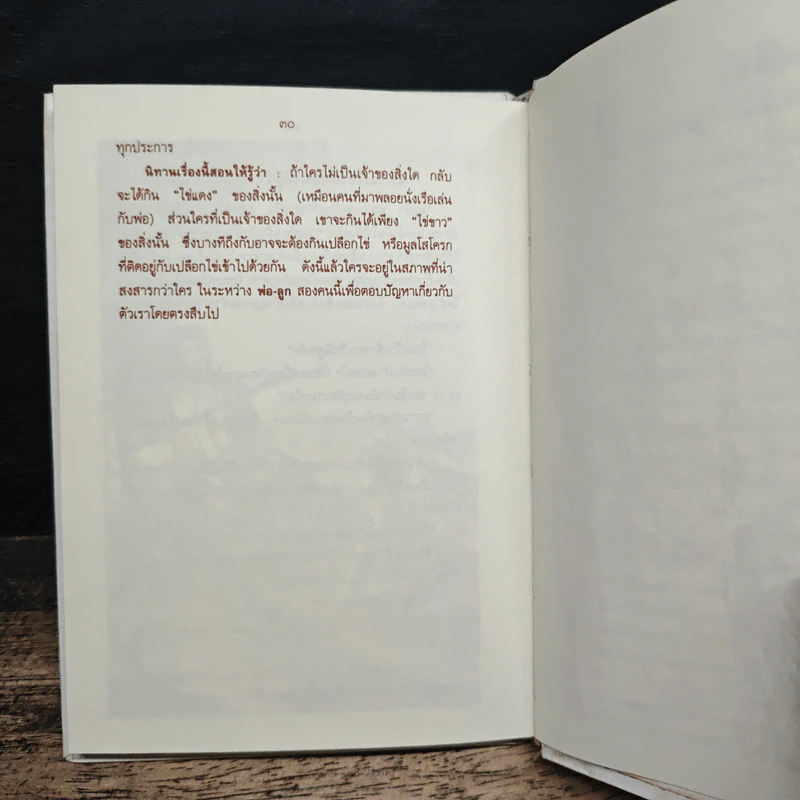 ๓๐
ทุกประการ
นิทานเรื่องนี้สอนให้รู้ว่า : ถ้าใครไม่เป็นเจ้าของสิ่งใด กลับ
จะได้กิน "ไข่แดง" ของสิ่งนั้น (เหมือนคนที่มาพลอยนั่งเรือเล่น
กับพ่อ) ส่วนใครที่เป็นเจ้าของสิ่งใด เขาจะกินได้เพียง "ไข่ขาว"
ของสิ่งนั้น ซึ่งบางทีถึงกับอาจจะต้องกินเปลือกไข่ หรือมูลโสโครก
ที่ติดอยู่กับเปลือกไข่เข้าไปด้วยกัน ดังนี้แล้วใครจะอยู่ในสภาพที่น่า
สงสารกว่าใคร ในระหว่าง พ่อ-ลูก สองคนนี้เพื่อตอบปัญหาเกี่ยวกับ
ตัวเราโดยตรงสืบไป